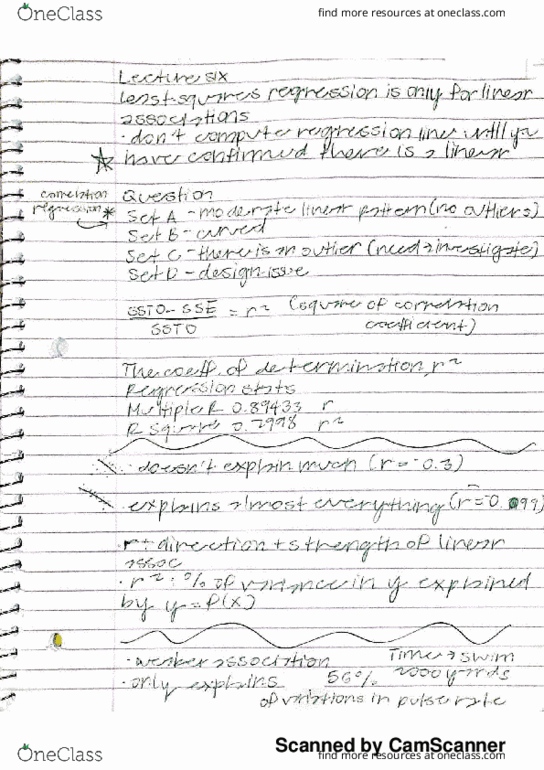 OneClass
find more resources at oneclass.com
Lecture six
Least-squares regression is only for linear
associations
· don't compute regression lines until you
have confirmed there is a linear
correlation
regression *
Question
Set A - moderate linear pattern (no outliers)
Set B - curved
Set C - there is an outlier (need → investigate)
Set D - design issue
SSTO - SSE = r² (square of correlation
SSTO coefficient)
The coeff of determination, r²
Regression stats
Multiple R 0.89433 r
R Square 0.7998 r²
· doesn't explain much (r = -0.3)
· explains almost everything (r = -0.99)
· r + direction + strength of linear
assoc
· r² : % of variance in y explained
by y = f(x)
· weaker association Time → swim
· only explains 56% 2000 yards
of variations in pulse rate
Scanned by CamScanner
OneClass
find more resources at oneclass.com